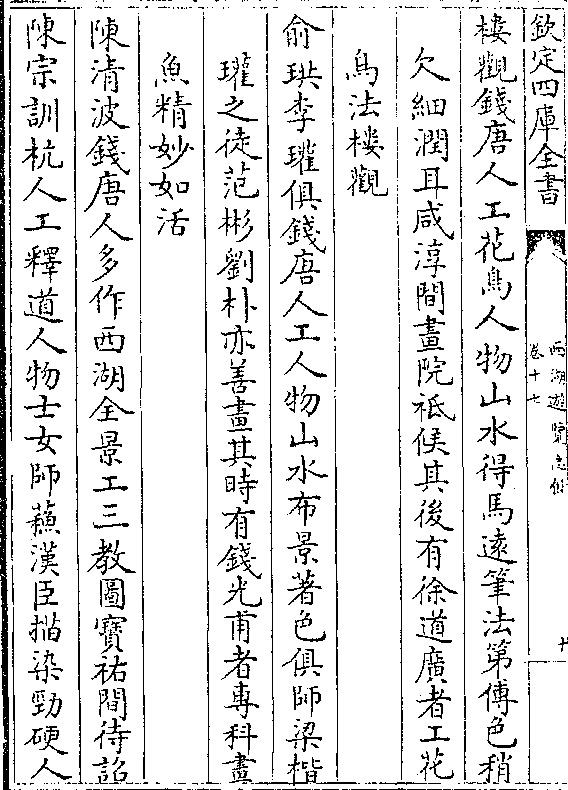 欽定四庫全書
西湖遊覽志餘
卷十七
樓觀錢唐人工花鳥人物山水得馬遠筆法第傅色稍
欠細潤耳咸淳間畫院祗候其後有徐道廣者工花
鳥法樓觀
俞珙李㼆俱錢唐人工人物山水布景著色俱師梁楷
㼆之徒范彬劉朴亦善畫其時有錢光甫者專科畫
魚精妙如活
陳清波錢唐人多作西湖全景工三教圖寳祐間待詔
陳宗訓杭人工釋道人物士女師蘇漢臣描染勁硬人